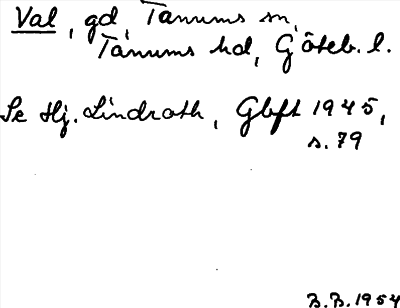 Val, gd, Tanums sn,
Tanums hd, Göteb. l.
Se Hj. Lindroth, Gbft 1945,
s. 79
B.B. 1954